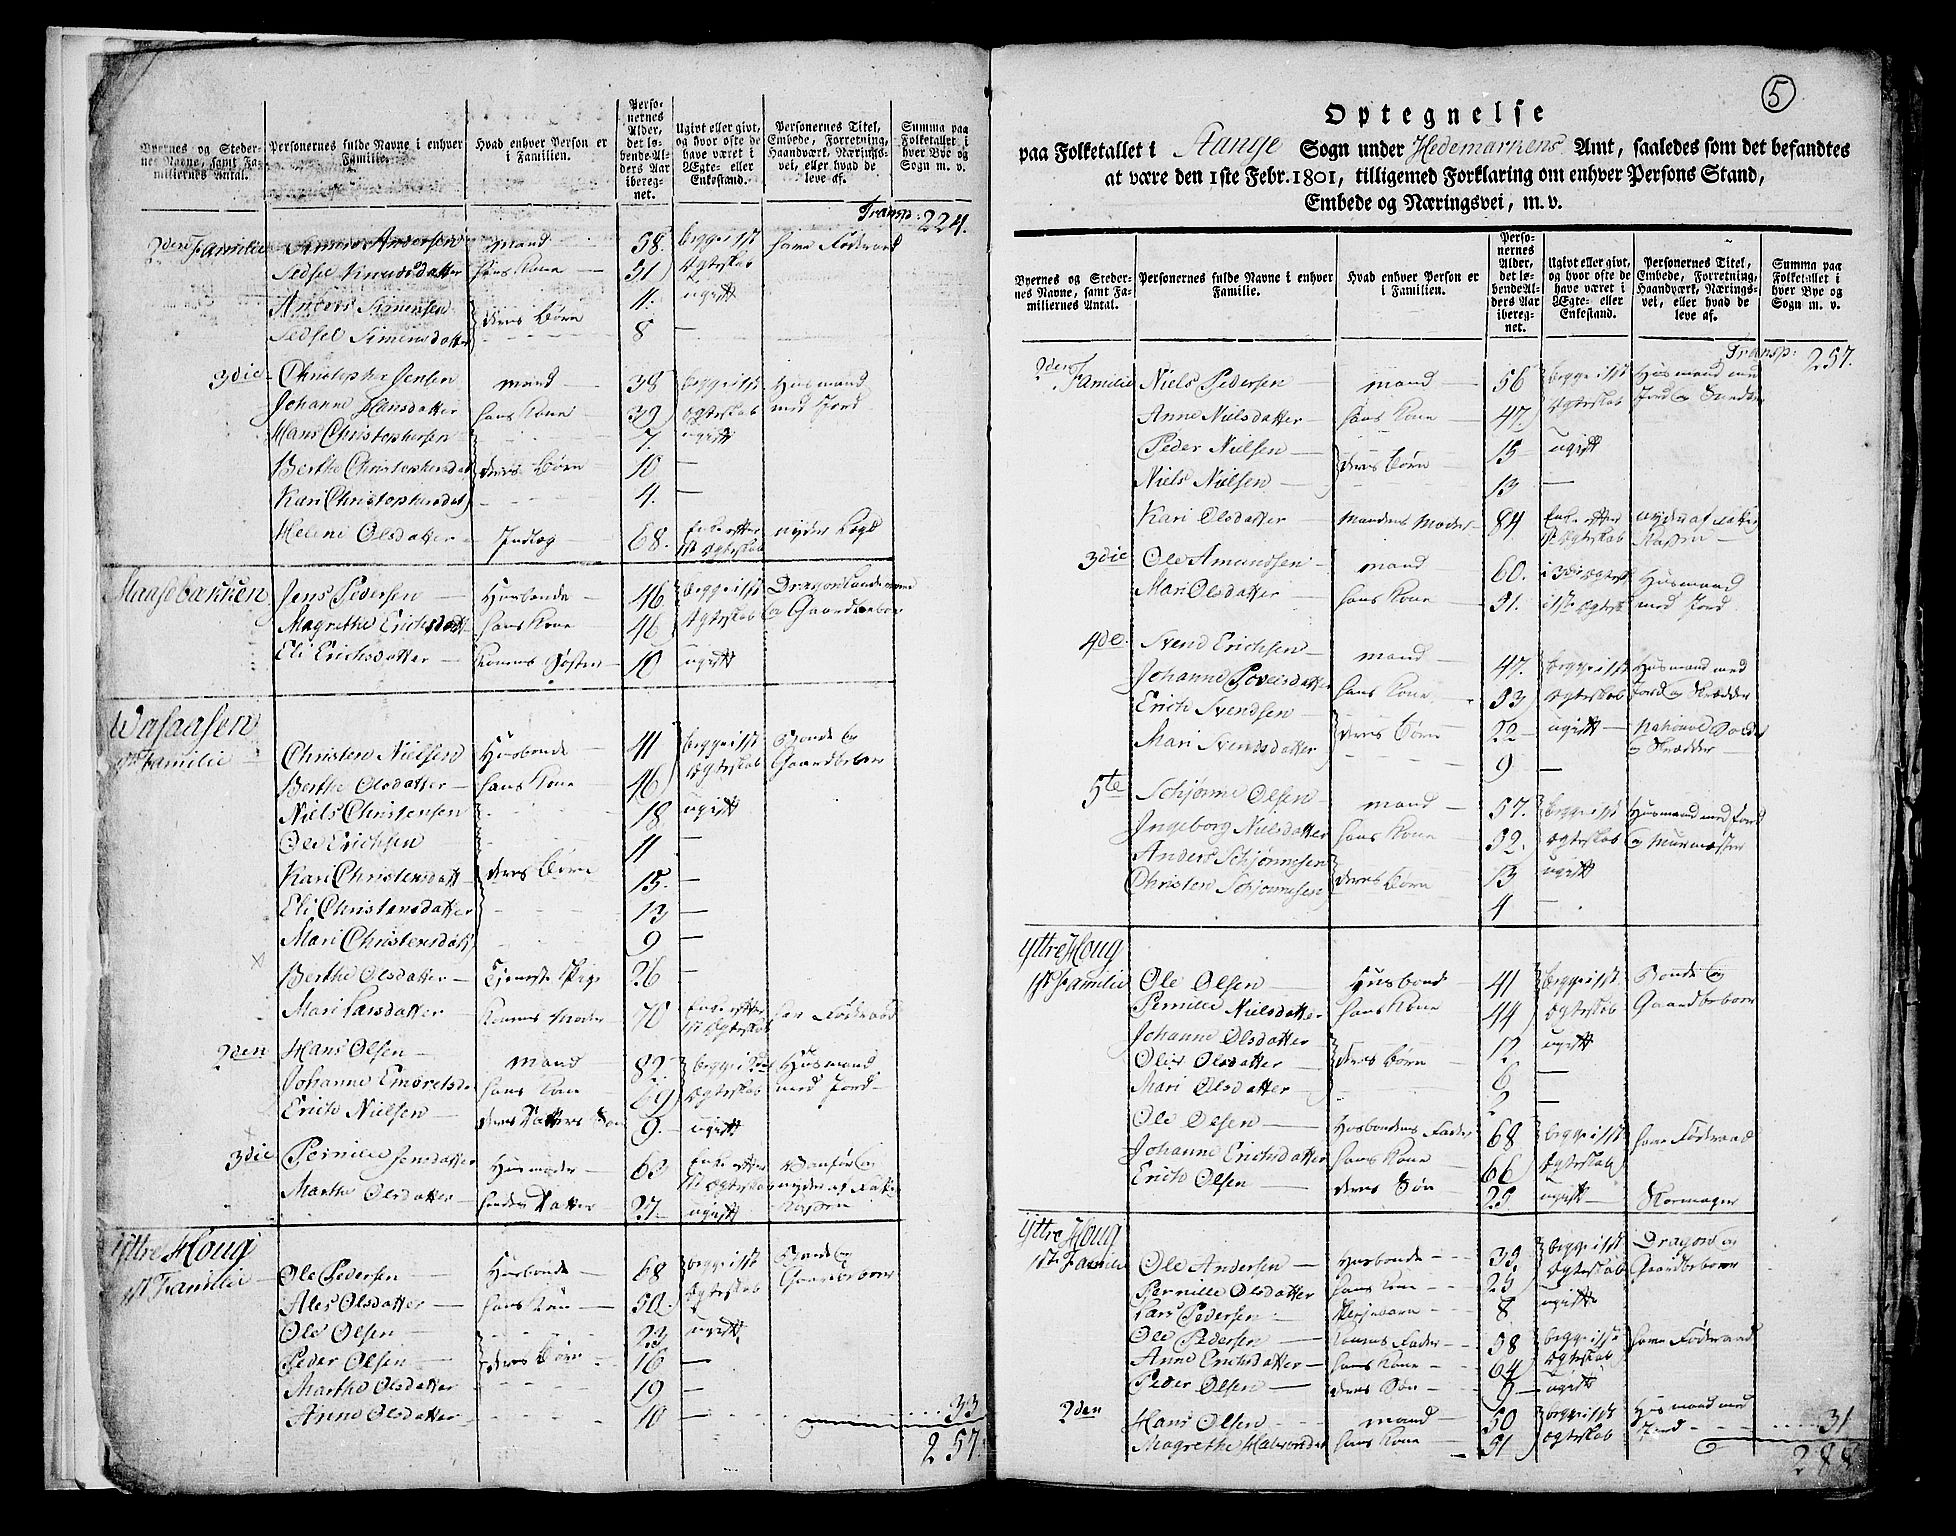 Byernes og Steder-
nes Navne, samt Fa-
miliernes Antal.
Personernes fulde Navne i enhver
Familie.
Hvad enhver Person er
i Familien.
Perso-
nernes
Alder,
det lø-
bende Al-
ders Aar
ibereg-
net.
Ugivt eller givt,
og hvor ofte de
have været i
Ægte- eller
Enkestand.
Personernes Titel,
Embede, Forretning,
Haandværk, Nærings-
vei, eller hvad de
leve af.
Summa paa
Folketallet i
hver Bye og
Sogn m. v.
Transp: 224.
2den Familie Simen Andersen mand 58. begge i 1ste
Sedsel Knudsdatter hans Kone 51 Ægteskab
Anders Simensen 11. ugivt
deres Børn
Sedsel Simensdatter 8 —
3die Christopher Jensen mand 38 begge i 1ste Huusmand
Johanne Hansdatter hans Kone 39 Ægteskab med Jord
Hans Christophersen 7 ugivt
Berthe Christophersdat deres Børn 10 —
Kari Christophersdat 4. —
Heleni Olsdatter Indlæg 68. Enke efter nyder Lægd
1st Ægteskab
Haasebacken Jens Pedersen Huusbonde 46 begge i 1st Dragon
Magrethe Erichsdatt hans Kone 46 Ægteskab og Gaardbeboer
Eli Erichsdatter Konens Søster 10 ugivt
Wasaasen
1st Familie Christen Nielsen Husbonde 41 begge i 1st Bonde og
Berthe Olsdatter hans Kone 46 Ægteskab Gaardbeboer
Niels Christensen 18 ugivt
Ole Erichsen 11 —
Kari Christensdatt deres Børn 15 —
Eli Christensdatter 13 —
Mari Christensdatt 9 —
Berthe Olsdatter Tjeneste Pige 26 —
Mari Larsdatter Konens Moder 70 Enke efter har Føderaad
1st Ægteskab
2den Hans Olsen mand 82. begge i Huusmand
Johanne Embretsda hans Kone 69 Ægteskab med Jord
Erich Nielsen deres Datters Søn 9. ugivt
3die Pernille Jensdatter Huusmoder 63 Enke efter Vanfør og
1st Ægteskab nyder af Fattig
Marthe Olsdatter hendes Datter 27. ugivt Kassen
Yttre Houg
1st Familie Ole Pedersen Husbonde 68 begge i 1st Bonde og
Ales Olsdatter hans Kone 50 Ægteskab Gaardbeboer
Ole Olsen 23 ugivt
Peder Olsen deres Børn 16 —
Marthe Olsdatter 19 —
Anne Olsdatter 10 — 33
257.
5
Optegnelse
paa Folketallet i Stange Sogn under Hedemarkens Amt, saaledes som det befandtes
at være den 1ste Febr. 1801, tilligemed Forklaring om enhver Persons Stand,
Embede og Næringsvei, m. v.
Byernes og Steder-
nes Navne, samt Fa-
miliernes Antal.
Personernes fulde Navne i enhver
Familie.
Hvad enhver Person er
i Familien.
Perso-
nernes
Alder,
det lø-
bende Al-
ders Aar
ibereg-
net.
Ugivt eller givt,
og hvor ofte de
have været i
Ægte- eller
Enkestand.
Personernes Titel,
Embede, Forretning,
Haandværk, Nærings-
vei, eller hvad de
leve af.
Summa paa
Folketallet i
hver Bye og
Sogn m. v.
Transp: 257.
2den
Familie Niels Pedersen mand 56 begge i 1st Huusmand med
Anne Nielsdatter hans Kone 47 Ægteskab Jord og
Peder Nielsen 15 ugivt
deres Børn
Niels Nielsen 13 —
Kari Olsdatter Mandens Moder 84 Enke efter nyder af Fattig
1st Ægteskab Kassen
3die Ole Amundsen mand 60. i 3die Ægtesk Huusmand
Mari Olsdatter hans Kone 51. i 1ste Ægtesk med Jord
4de Svend Erichsen mand 47. begge i 1st Huusmand med
Johanne Povelsdatter hans Kone 53 Ægteskab Jord og Skrædder
Erich Svendsen 22 ugivt National Soldat
deres Børn og Skrædder
Mari Svendsdatter 9 —
5te Schjønne Olsen mand 57. begge i 1st Huusmand med Jord
Ingeborg Nielsdatter hans Kone 52. Ægteskab og Muurmester
Anders Schjønnesen 13 ugivt
Christen Schjønnesen deres Børn 4 —
Yttre Houg
1st Familie Ole Olsen Husbonde 41 begge i 1st Bonde og
Pernille Nielsdatter hans Kone 44 Ægteskab Gaardbeboer
Johanne Olsdatter 12 ugivt
Olea Olsdatter deres Børn 6 —
Mari Olsdatter 2 —
Ole Olsen Husbondens Fader 68 begge i 1st have Føderaad
Johanne Erichsdatter hans Kone 66 Ægteskab
Erich Olsen deres Søn 25 ugivt Skomager
Yttre Houg
1ste Familie Ole Andersen Husbonde 35 begge i 1st Dragon og
Pernille Olsdatter hans Kone 25 Ægteskab Gaardbeboer
Lars Pedersen Pleiebarn 8 ugivt
Ole Pedersen Konens Fader 58 begge i 1st have Føderaad
Anne Erichsdatter hans Kone 64 Ægteskab
Peder Olsen deres Søn 9 ugivt
2den Hans Olsen mand 50 begge i 1st Huusmand med
Magrethe Halvorsdat hans Kone 51 Ægteskab Jord 31
288